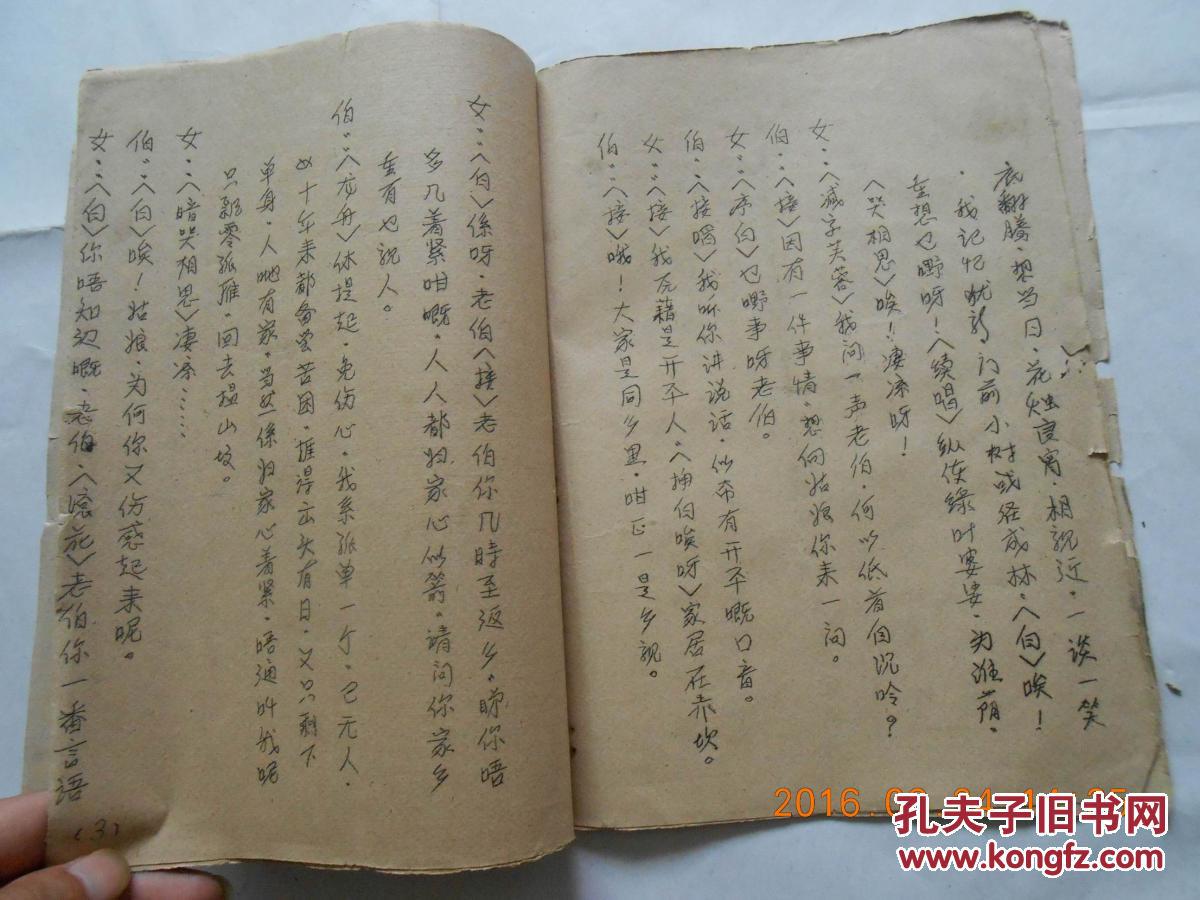 底翻腾·想当日·花烛良宵·相親近·一谈一笑
·我记忆犹新门前小树或经成林·〈白〉唉！
重想乜嘢呀！〈续唱〉纵使绿叶婆娑·为谁荫·
〈哭相思〉唉！凄凉呀！
女：〈减字芙蓉〉我问一声老伯·何以低首自沉吟？
伯：〈接〉因有一件事情·想向姑娘你来一问。
女：〈序白〉乜嘢事呀老伯。
伯：〈接唱〉我听你讲说话·似带有开平嘅口音。
女：〈接〉我原藉是开平人〈抽白唉呀〉家居在赤坎。
伯：〈接〉哦！大家是同乡里·咁正一是乡親。
女：〈白〉係呀·老伯〈接〉老伯你几時至返乡·睇你唔
多几着緊咁嘅·人人都归家心似箭·請问你家乡
重有乜親人。
伯：〈龙舟〉休提起·免伤心·我系孤单一个·已无人·
四十年来都备尝苦困·捱得出头有日·又只剩下
单身·人哋有家·当然係归家心着紧·唔通叫我呢
只飘零孤雁·回去揾山坟。
女：〈暗哭相思〉凄凉……
伯：〈白〉唉！姑娘·为何你又伤感起来呢。
女：〈白〉你唔知边嘅·老伯·〈滚花〉老伯你一番言语
(3)
2016.0
孔夫子旧书网
www.kongfz.com